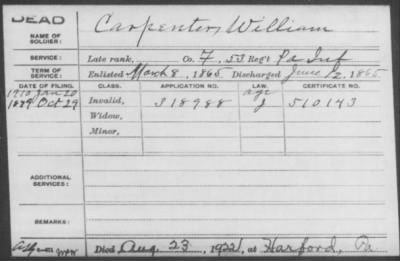 DEAD
NAME OF SOLDIER: Carpenter, William
SERVICE: Late rank, Co. F, 53 Regt Pa Inf
TERM OF SERVICE: Enlisted March 8, 1865 Discharged June 12, 1865
DATE OF FILING. CLASS. APPLICATION NO. LAW. CERTIFICATE NO.
1910 Jan 20 age
1879 Oct 29 Invalid, 318988 J 510143
Widow,
Minor,
ADDITIONAL SERVICES:
REMARKS:
Died Aug. 23, 1922, at Harford, Pa